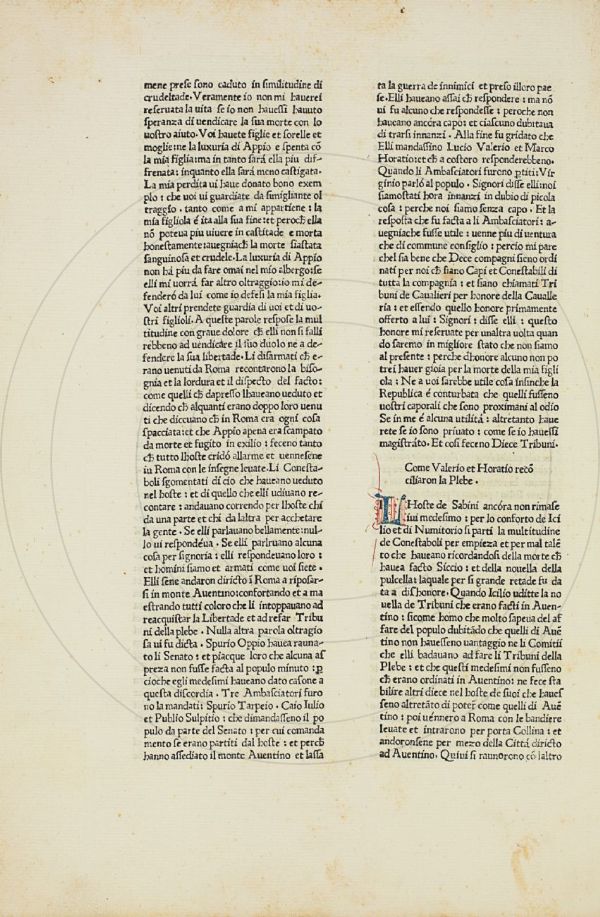 mene prese sono caduto in similitudine di
crudeltade. Veramente io non mi hauerei
reseruata la uita se io non hauessi hauuto
speranza di uendicare la sua morte con lo
uostro aiuto. Voi hauete figlie et sorelle et
moglie: ne la luxuria di Appio e spenta cō
la mia figlia: ma in tanto sará ella piu dif-
frenata: inquanto ella sará meno castigata.
La mia perdita ui haue donato bono exem
plo : che uoi ui guardiate da simigliante ol
traggio. tanto come a mi appartiene : la
mia figliola é ita alla sua fine: et perocħ ella
nō poteua piu uiuere in castitade e morta
honestamente: auegniacħ la morte sia stata
sanguinosa et crudele. La luxuria di Appio
non há piu da fare omai nel mio albergo: se
elli mi uorrá far altro oltraggio: io mi de-
fenderó da lui come io defesi la mia figlia.
Voi altri prendete guardia di uoi et di uo-
stri figlioli. A queste parole respose la mul
titudine con graue dolore cħ elli non si falli
rebbeno ad uendicare il suo duolo ne a de-
fendere la sua libertade. Li disarmati cħ e-
rano uenuti da Roma recontarono la biso-
gnia et la lordura et il dispecto del facto:
come quelli cħ dapresso lhaueano ueduto et
dicendo cħ alquanti erano doppo loro uenu
ti che diceuano cħ in Roma era ogni cosa
spacciata: et cħ Appio apena era scampato
da morte et fugito in exilio : feceno tanto
cħ tutto lhoste cridó allarme et uennesene
iu Roma con le insegne leuate. Li Conesta-
boli sgomentati di cio che haueano ueduto
nel hoste : et di quello che elli udiuano re-
contare : andauano correndo per lhoste chi
da una parte et chi da laltra per acchetare
la gente. Se elli parlauano bellamente: nul-
lo ui respondéua. Se elli parlruano alcuna
cosa per signoria : elli respondeuano loro :
et homini siamo et armati come uoi siete.
Elli sene andaron diricto i Roma a riposar-
si in monte Auentino: confortando et a ma
estrando tutti coloro che li intoppauano ad
reacquistar la Libertade et ad refar Tribu
ni della plebe. Nulla altra parola oltragio
sa ui fu dicta. Spurio Oppio hauea rauna-
to li Senato : et piacque loro che alcuna as
preza non fusse facta al populo minuto : ꝑ
cioche egli medesimi haueano dato casone a
questa discordia. Tre Ambasciatori furo
no la mandati: Spurio Tarpeio. Caio Iulio
et Publio Sulpitio : che dimandasseno il po
pulo da parte del Senato : per cui comanda
mento se erano partiti dal hoste : et percħ
hanno assediato il monte Auentino et lassa
ta la guerra de innimici et preso illoro pae
se. Elli haueano assai cħ respondere : ma nō
ui fu alcuno che respondesse : peroche non
haueano ancóra capo: et ciascuno dubitaua
di trarsi innanzi. Alla fine fu gridato che
Elli mandassino Lucio Valerio et Marco
Horatio: et cħ a costoro responderebbeno.
Quando li Ambasciatori furono ꝑtiti: Vir
ginio parló al populo. Signori disse elli: noi
siamo stati hora innanzi in dubio di picola
cosa : perche noi siamo senza capo. Et la
resposta che fu facta a li Ambasciatori: a-
uegniache fusse utile : uenne piu di uentura
che di commune consiglio : percio mi pare
chel sia bene che Dece compagni sieno ordi
nati per noi cħ siano Capi et Conestabili di
tutta la compagnia : et siano chiamati Tri
buni de Caualieri per honore della Cauale
ria : et essendo quello honore primamente
offerto a lui : Signori : disse elli : questo
honore mi reseruate per unaltra uolta quan
do saremo in migliore stato che non siamo
al presente : perche dhonore alcuno non po
trei hauer gioia per la morte della mia figli
ola : Ne a uoi sarebbe utile cosa infinche la
Republica é conturbata che quelli fusseno
uostri caporali che sono proximani al odio
Se in me é alcuna utilitá : altretanto haue
rete se io sono priuato : come se io hauessi
magistrato. Et cosi feceno Diece Tribuni.
Come Valerio et Horatio recō
ciliaron la Plebe.
LHoste de Sabini ancóra non rimase
iui medesimo : per lo conforto de Ici
lio et di Numitorio si parti la multitudine
de Conestaboli per empieza et per mal talē
to che haueano ricordandosi della morte cħ
hauea facto Siccio : et della nouella della
pulcella: laquale per si grande retade fu da
ta a dishonore. Quando Icilio uditte la no
uella de Tribuni che erano facti in Auen-
tino : sicome homo che molto sapeua del af
fare del populo dubitādo che quelli di Auē
tino non hauesseno uantaggio ne li Comitii
che elli badauano ad fare li Tribuni della
Plebe : et che questi medesimi non fusseno
cħ erano ordinati in Auentino: ne fece sta
bilire altri diece nel hoste de suoi che haues
seno altretāto di poter come quelli di Auē
tino : poi uēnero a Roma con le bandiere
leuate et intrarono per porta Collina : et
andoronsene per mezo della Cittá diricto
ad Auentino. Quiui si raunorono cō laltro